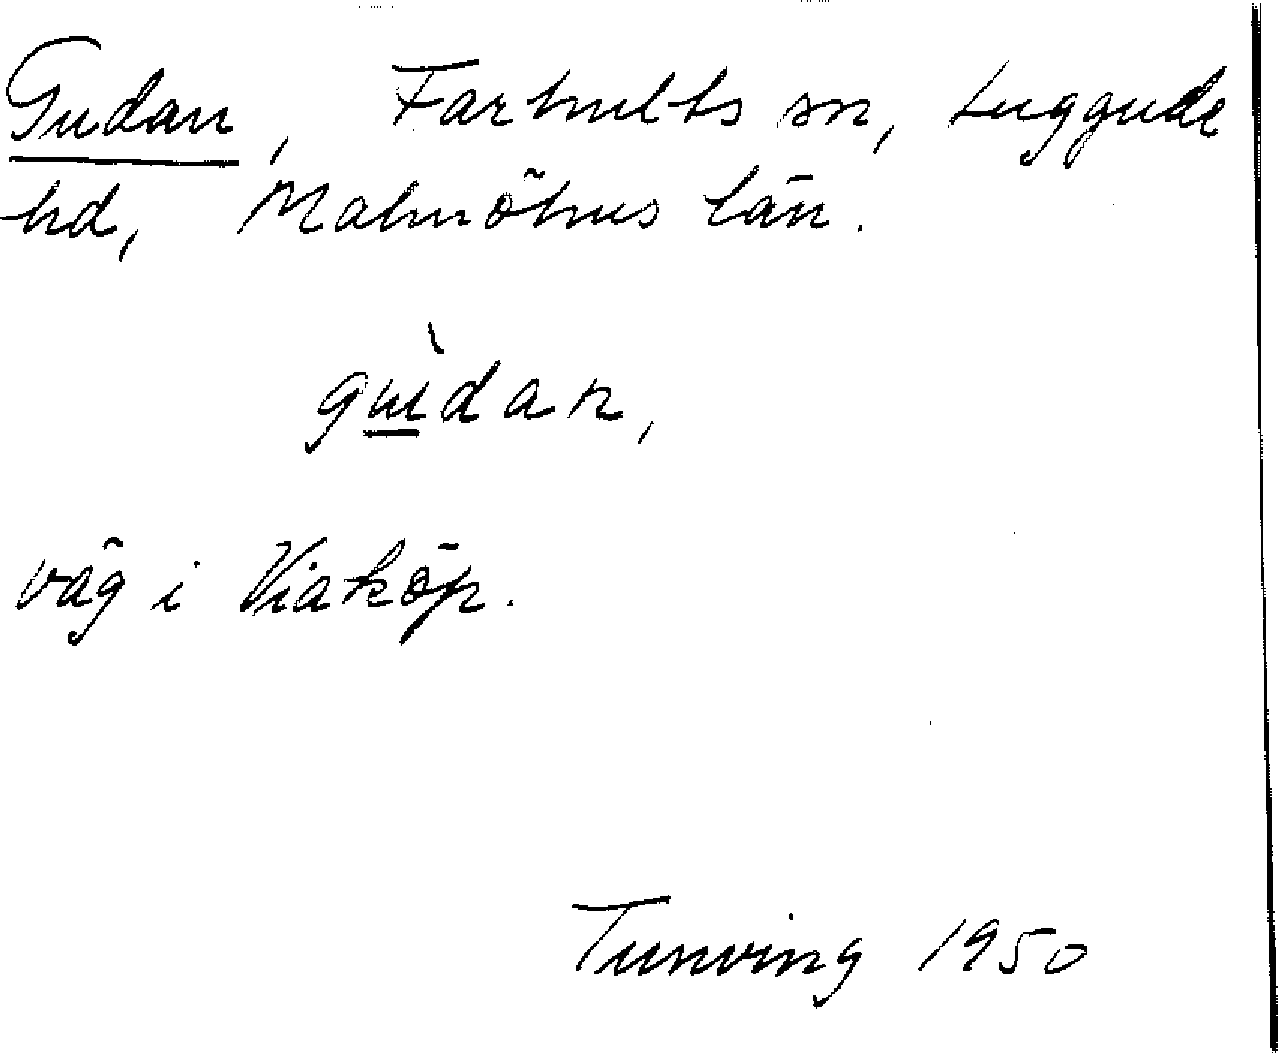 Gudan, Farhults sn, Luggude
hd, Malmöhus län.
gù̲dan,
väg i Viaköp.
Tunving 1950